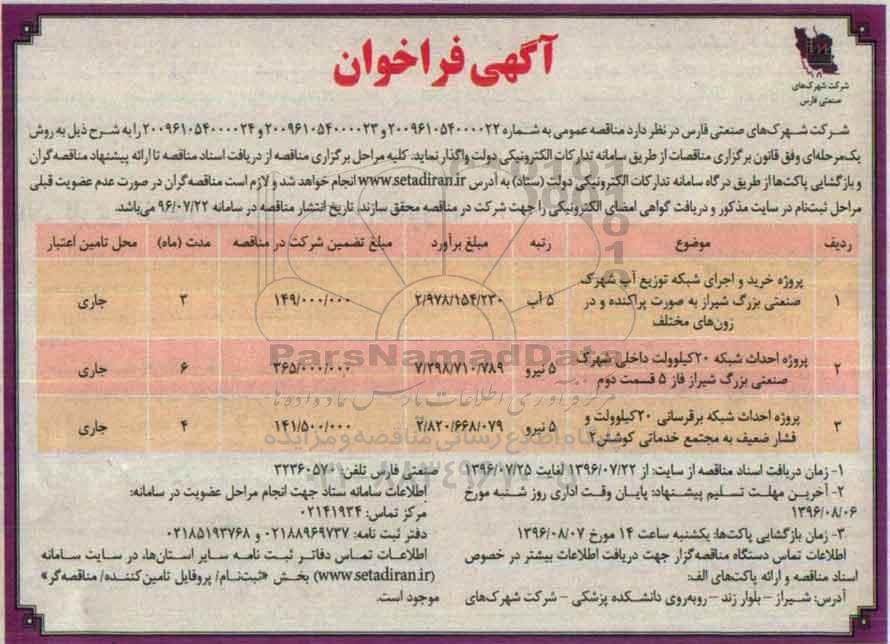 آگهی فراخوان
شرکت شهرک‌های
صنعتی فارس
شرکت شهرک‌های صنعتی فارس در نظر دارد مناقصه عمومی به شماره ۲۰۰۹۶۱۰۵۴۰۰۰۰۲۲ و ۲۰۰۹۶۱۰۵۴۰۰۰۰۲۳ و ۲۰۰۹۶۱۰۵۴۰۰۰۰۲۴ را به شرح ذیل به روش
یک‌مرحله‌ای وفق قانون برگزاری مناقصات از طریق سامانه تدارکات الکترونیکی دولت واگذار نماید. کلیه مراحل برگزاری مناقصه از دریافت اسناد مناقصه تا ارائه پیشنهاد مناقصه‌گران
و بازگشایی پاکت‌ها از طریق درگاه سامانه تدارکات الکترونیکی دولت (ستاد) به آدرس www.setadiran.ir انجام خواهد شد و لازم است مناقصه‌گران در صورت عدم عضویت قبلی
مراحل ثبت‌نام در سایت مذکور و دریافت گواهی امضای الکترونیکی را جهت شرکت در مناقصه محقق سازند. تاریخ انتشار مناقصه در سامانه ۹۶/۰۷/۲۲ می‌باشد.
ردیف موضوع رتبه مبلغ برآورد مبلغ تضمین شرکت در مناقصه مدت (ماه) محل تامین اعتبار
پروژه خرید و اجرای شبکه توزیع آب شهرک
۱ صنعتی بزرگ شیراز به صورت پراکنده و در ۵ آب ۲/۹۷۸/۱۵۴/۲۳۰ ۱۴۹/۰۰۰/۰۰۰ ۳ جاری
زون‌های مختلف
پروژه احداث شبکه ۲۰کیلوولت داخلی شهرک
۲ صنعتی بزرگ شیراز فاز ۵ قسمت دوم ۵ نیرو ۷/۲۹۸/۷۱۰/۷۸۹ ۳۶۵/۰۰۰/۰۰۰ ۶ جاری
پروژه احداث شبکه برقرسانی ۲۰کیلوولت و
۳ فشار ضعیف به مجتمع خدماتی کوشش۲ ۵ نیرو ۲/۸۲۰/۶۶۸/۰۷۹ ۱۴۱/۵۰۰/۰۰۰ ۴ جاری
ParsNamadData
مرکز فرآوری اطلاعات پارس نماد داده‌ها
۱- زمان دریافت اسناد مناقصه از سایت: از ۱۳۹۶/۰۷/۲۲ لغایت ۱۳۹۶/۰۷/۲۵
۲- آخرین مهلت تسلیم پیشنهاد: پایان وقت اداری روز شنبه مورخ
۱۳۹۶/۰۸/۰۶
۳- زمان بازگشایی پاکت‌ها: یکشنبه ساعت ۱۴ مورخ ۱۳۹۶/۰۸/۰۷
اطلاعات تماس دستگاه مناقصه‌گزار جهت دریافت اطلاعات بیشتر در خصوص
اسناد مناقصه و ارائه پاکت‌های الف:
آدرس: شیراز – بلوار زند – روبه‌روی دانشکده پزشکی – شرکت شهرک‌های
صنعتی فارس تلفن: ۳۲۳۶۰۵۷۰
اطلاعات سامانه ستاد جهت انجام مراحل عضویت در سامانه:
مرکز تماس: ۰۲۱۴۱۹۳۴
دفتر ثبت نامه: ۰۲۱۸۸۹۶۹۷۳۷ و ۰۲۱۸۵۱۹۳۷۶۸
اطلاعات تماس دفاتر ثبت نامه سایر استان‌ها، در سایت سامانه
(www.setadiran.ir) بخش «ثبت‌نام/ پروفایل تامین‌کننده/ مناقصه‌گر»
موجود است.